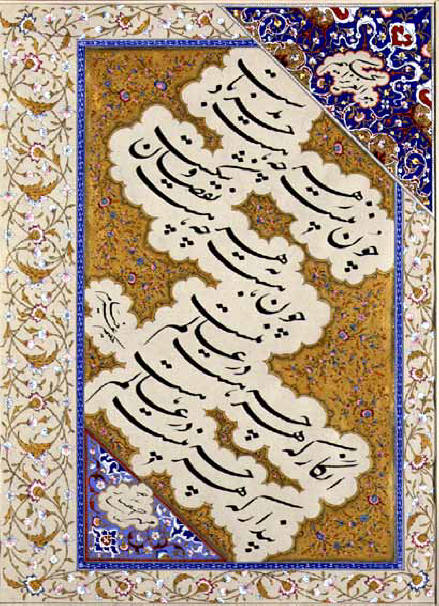 چون نیست ز هر چه هست جز باد بدست
چون هست به هر چه هست نقصان و شکست
انگار که هر چه هست در عالم نیست
پندار که هر چه نیست در عالم هست